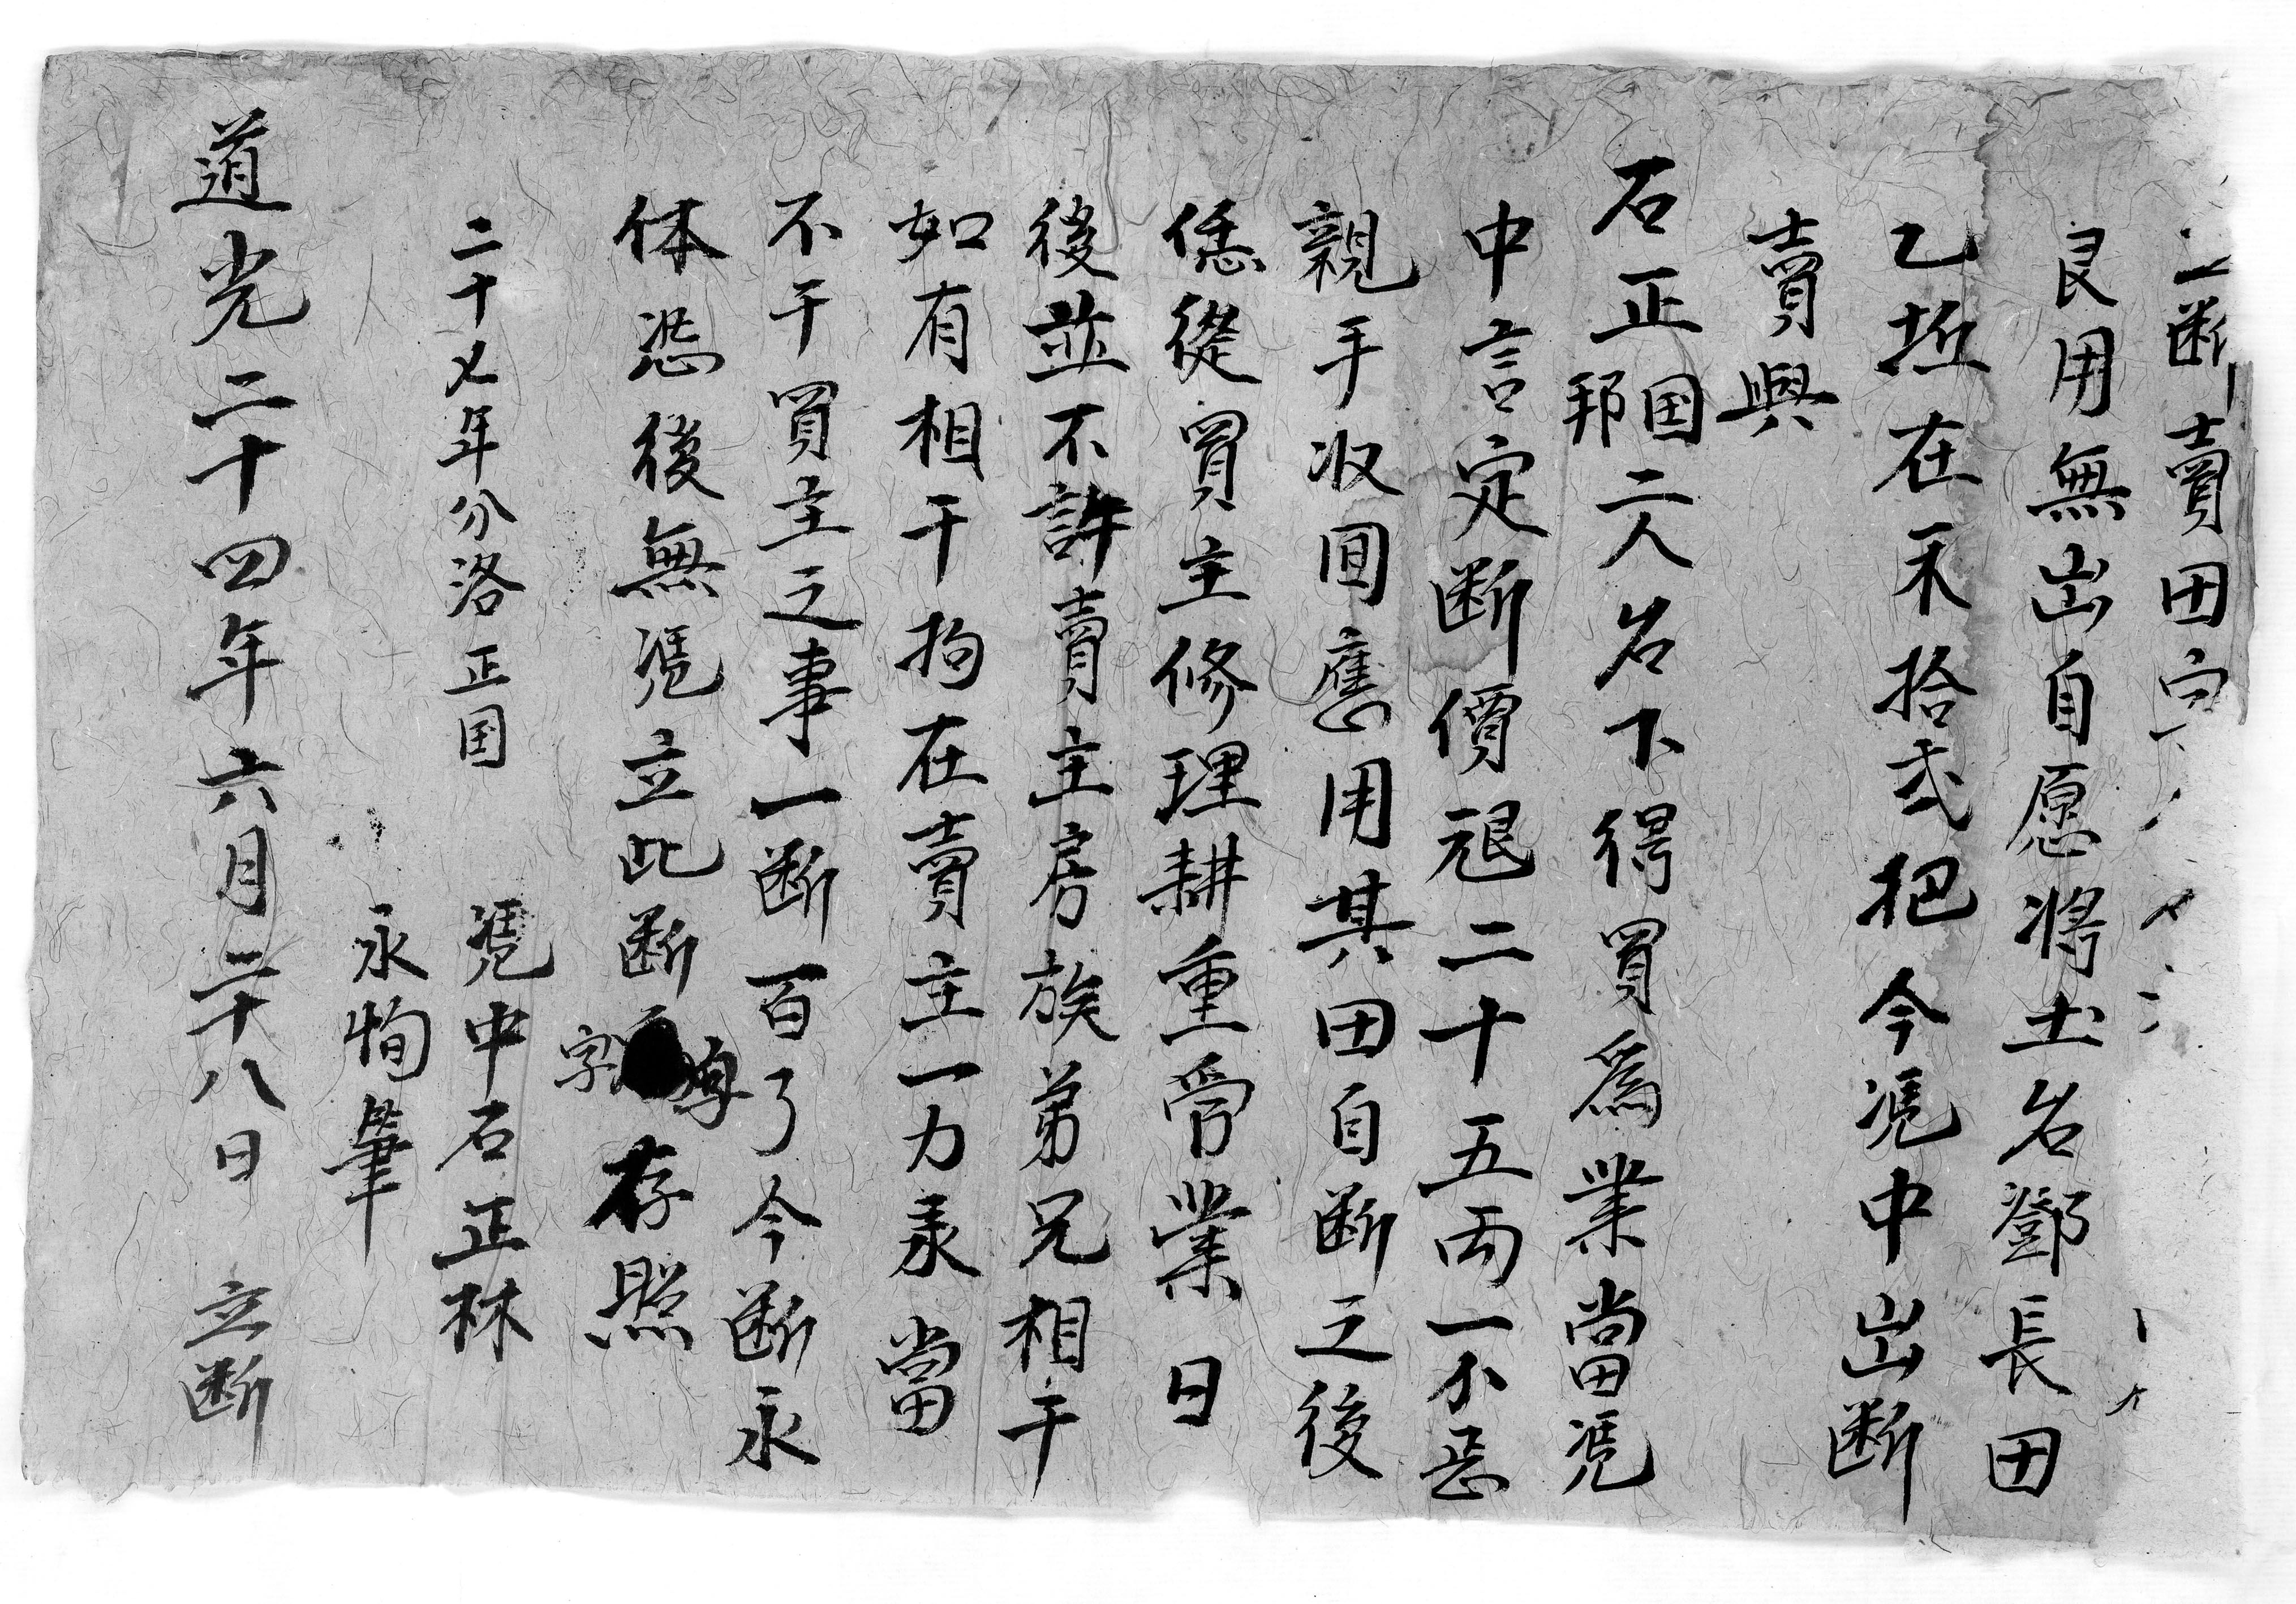 立断賣田字
艮用無出自愿將土名鄧長田
乙坵在禾拾弍把今憑中出断
賣與
石正国邦二人名下得買爲業當憑
中言定断價艮二十五两一不忌
親手收回應用其田自断之後
恁從買主修理耕種管業日
後並不許賣主房族弟兄相干
如有相干拘在賣主一力承當
不干買主之事一断百了今断永
休恐後無憑立此断字存照
二十七年分洛正国
憑中石正林
永恂筆
道光二十四年六月二十八日立断